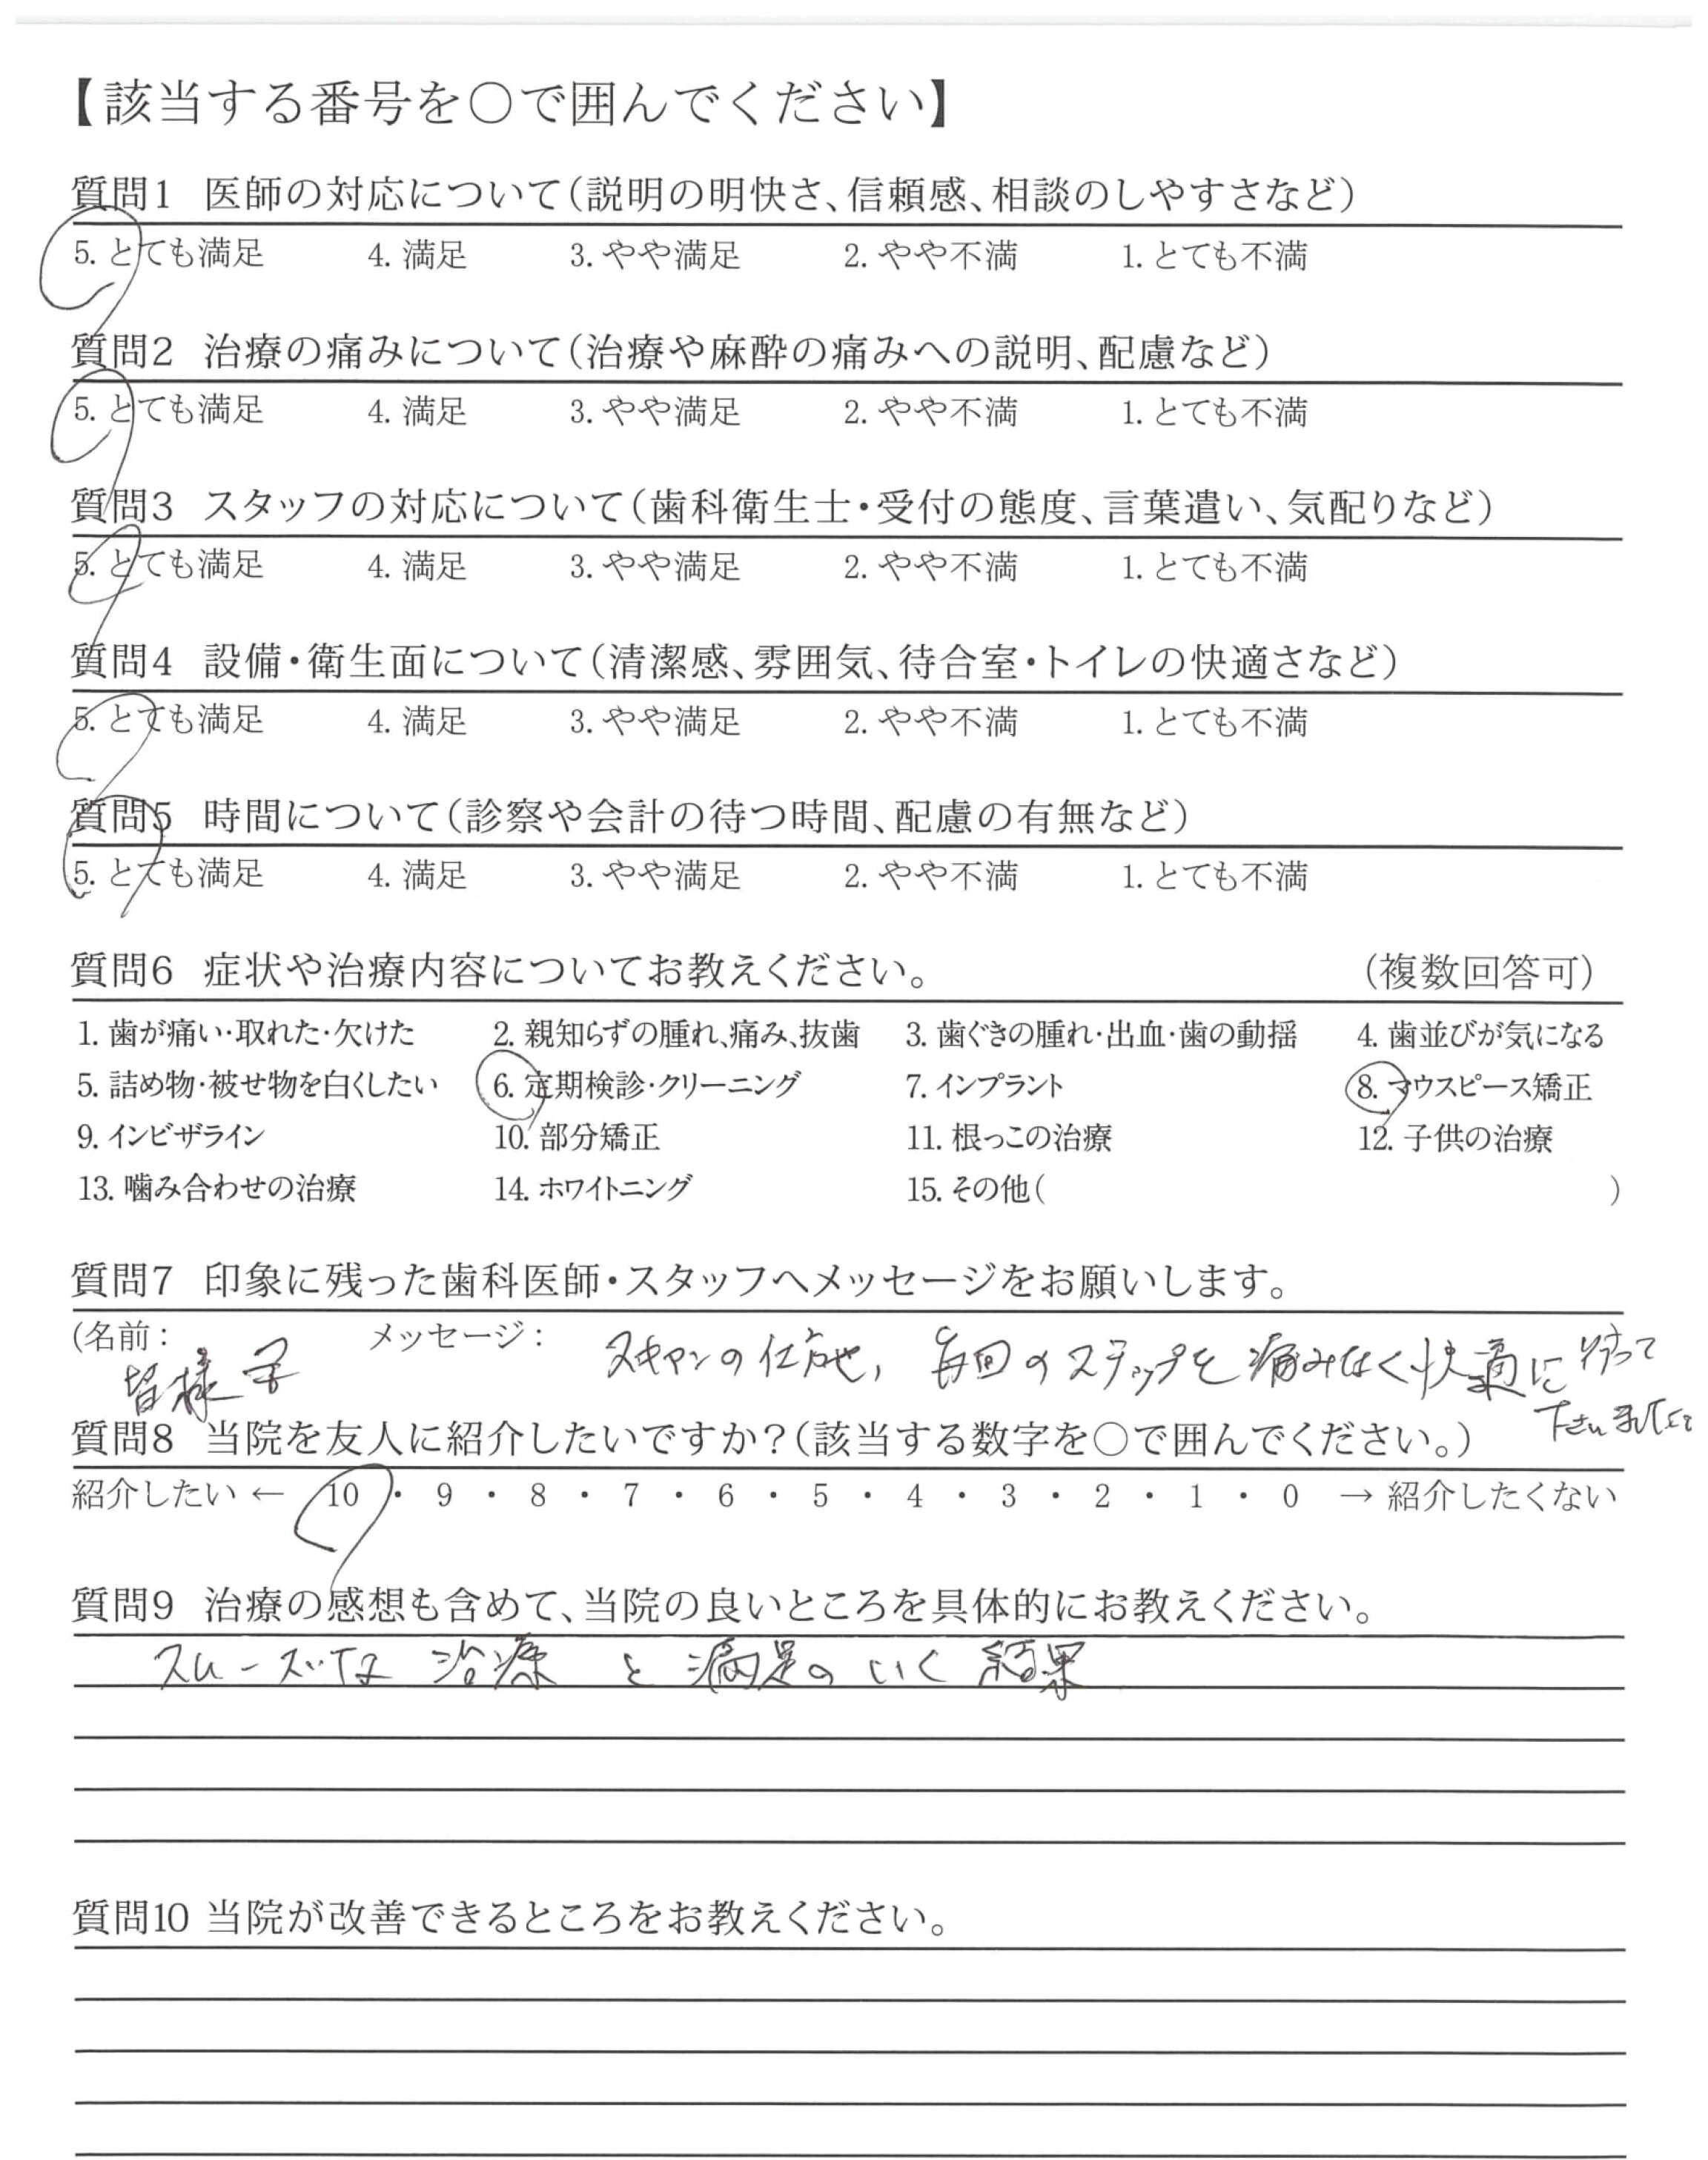 【該当する番号を○で囲んでください】
質問1 医師の対応について(説明の明快さ、信頼感、相談のしやすさなど)
5. とても満足 4. 満足 3. やや満足 2. やや不満 1. とても不満
質問2 治療の痛みについて(治療や麻酔の痛みへの説明、配慮など)
5. とても満足 4. 満足 3. やや満足 2. やや不満 1. とても不満
質問3 スタッフの対応について(歯科衛生士・受付の態度、言葉遣い、気配りなど)
5. とても満足 4. 満足 3. やや満足 2. やや不満 1. とても不満
質問4 設備・衛生面について(清潔感、雰囲気、待合室・トイレの快適さなど)
5. とても満足 4. 満足 3. やや満足 2. やや不満 1. とても不満
質問5 時間について(診察や会計の待つ時間、配慮の有無など)
5. とても満足 4. 満足 3. やや満足 2. やや不満 1. とても不満
質問6 症状や治療内容についてお教えください。 (複数回答可)
1. 歯が痛い・取れた・欠けた 2. 親知らずの腫れ、痛み、抜歯 3. 歯ぐきの腫れ・出血・歯の動揺 4. 歯並びが気になる
5. 詰め物・被せ物を白くしたい 6. 定期検診・クリーニング 7. インプラント 8. マウスピース矯正
9. インビザライン 10. 部分矯正 11. 根っこの治療 12. 子供の治療
13. 噛み合わせの治療 14. ホワイトニング 15. その他( )
質問7 印象に残った歯科医師・スタッフへメッセージをお願いします。
(名前: メッセージ:
皆様 スキャンの仕方も, 毎回のステップを痛みなく快適に行って
下さいました。
質問8 当院を友人に紹介したいですか?(該当する数字を○で囲んでください。)
紹介したい ← 10 ・ 9 ・ 8 ・ 7 ・ 6 ・ 5 ・ 4 ・ 3 ・ 2 ・ 1 ・ 0 → 紹介したくない
質問9 治療の感想も含めて、当院の良いところを具体的にお教えください。
スムーズな 治療 と 満足の いく 結果
質問10 当院が改善できるところをお教えください。